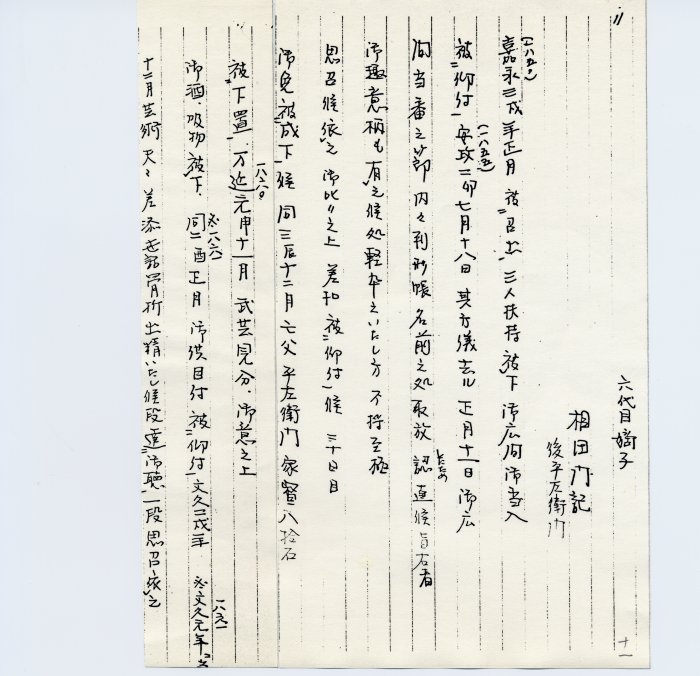 六代目嫡子
相田内記
後平左衛門
(一八五〇)
嘉永三戌年正月被召出三人扶持被下御広間御番入
(一八五五)
被仰付安政二卯七月十八日其方儀去ル正月十一日御広
間当番之節内々判形帳名前之処取放認直候旨右者
したため
御趣意柄も有之候処軽卒之いたし方不埒至極
思召候依之御叱り之上差扣被仰付候三十日目
御免被成下候同三辰十二月亡父平左衛門家督八拾石
一八六〇
被下置万延元申十一月武芸見分御意之上
※一八六一
御酒、吸物被下、同二酉正月御供目付被仰付文久二戌年
※文久元年
一八六一
十二月芸術夫々差添世話骨折出精いたし候段達御聴一段思召依之
十一